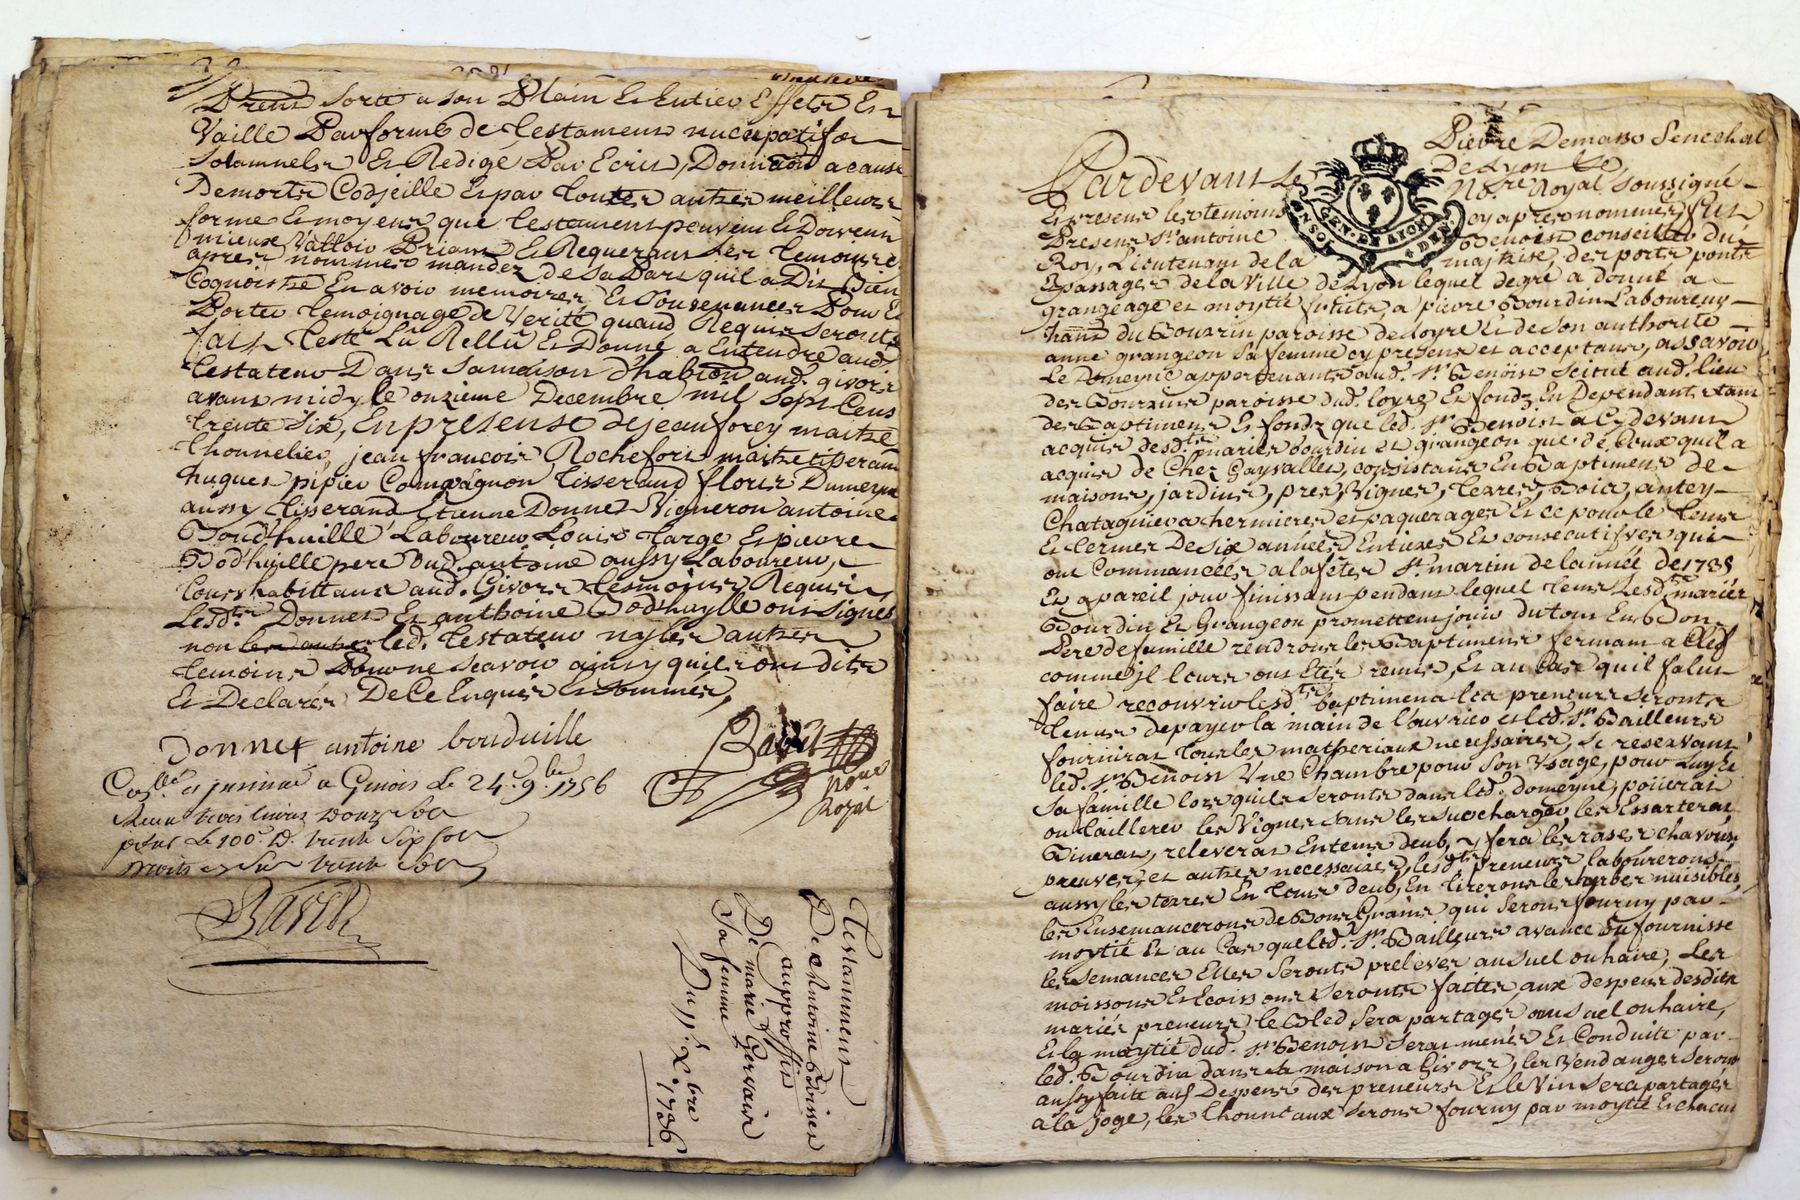 Prenne sorte a son Plain Et Entier Effets Et
Vaille Par forme de testament nuncupatif
Solamnele Et Redigé Par Ecrit, Donnaõn a cause
Demorte Codjeille Et par toutes autres meilleurs
forme Et moyens que testament peuvent Et Doivent
mieux Valloir Priant Et Requerant les temoins
apres nommes mandez de sa Part quil a Dit Bien
Cognoistre En avoir memoires Et Souvenances Pour Et
Porter temoignage de Verité quand Requis Seronts
fait Leste Lu Rellu Et Donné a Entendre aud.
testateur Dans Samaison d'habiton aud. givors
avant midy le onzieme Decembre mil Sept Cens
trente Six, En presense de jean forey maitre
thonnelier, jean francois Rochefort maitre tisserand
hugues pipier Compagnon tisserand floris Dumeynt
aussy tisserand Etienne Donnet Vigneron antoine
Boud'huille Laboureur Louis targe Et pierre
Bod'huille pere dud. antoine aussy Laboureur,
tous habittans aud. Givors temoins Requis,
Lesd.ts Donnet Et anthoine Bod'huylle ont Signés
non led. testateur ny les autres
temoins Pour ne scavoir ainsy quils ont dits
Et Declarés De Ce Enquis Et Sommés,
Donnet antoine bouduille
Not.re
Royal
a Givors Le 24. 9.bre 1756
trois livres Douze sols
Le 100.e D. trente Six sols
trente sols
Testamment
De Antoine
au proffit
De marie Gervais
Sa femme
Du 11.e X.bre
1736
Pierre Demasso Senechal
De Lyon
Pardevant Le No.re Royal Soussigné
Et presens les temoins cy apres nommes fut
Presens S.r antoine Benoist conseiller du
Roy, Lieutenant de la maitrise des ports ponts
Et passages de la Ville de Lyon lequel de gre a donné a
grangeage et moytié fruits, a pierre Bourdin Laboureur
du Bourrin paroisse de loyre Et de son authorité
anne grangeon Sa femme cy presens et acceptans, assavoir
Le Domeyne appertenant aud. S.r Benoist Scitué aud. lieu
des Bourrins paroisse dud. loyre Et fonds En Dependant tant
des Baptimens Et fonds que led. S.r Benoist a Cy devant
acquis desd.ts mariés bourdin et grangeon que de Ceux quil a
acquis de Chez Gayvallet, consistans En Baptimens de
maisons, jardins, pres, Vignes, terres, Bois, antey
Chatagniers hermieres et paquerages Et ce pour le tems
Et termes De Six années Entieres Et consecutifves qui
ont Commancées a la fête S.t martin de lannée de 1735
Et a pareil jour finissant pendant lequel tems Lesd.ts mariés
Bourdin Et Grangeon promettent jouir du tout En Bon
Pere de famille rendront les Baptimens fermant a Clef
comme jl leurs ont Etés remis, Et au Cas quil fallut
faire recouvrir lesd.ts baptimens les preneurs seronts
tenus de payer la main de l'ouvrier et led. S.r Bailleur
fournirat tous les matheriaux necessaires, Se reservant
led. S.r Benoist Une Chambre pour Son Usage, pour Luy Et
Sa famille lors quils seronts dans led. domeyne, poüerat
ou taillerer les Vignes sans les Surcharger, les Essarterat
Binerat, releverat En tems deub, y fera les rases chavons,
preuves, et autres necessaires, lesd.ts preneurs labourerons
aussy les terres En tems deub, En tirerons les herbes nuisibles,
les Ensemancerons de Bons Grains qui Serons fourny par
moytié Et au Cas que led. S.r Bailleurs avance ou fournisse
les Semances Elles Seronts prelever au Suel ou haire, Les
moissons Et Ecoissons Seronts faites aux despens desdits
mariés preneurs, le Bled Sera partager au Suel ou haire,
Et la moytié dud. S.r Benoist Serat menés Et Conduite par
led. Bourdin dans sa maison a Givors, les Vendanges Serons
aussy faite aux Despens des preneurs Et le Vin Sera partagés
a la joge, les thonneaux Serons fourny par moytié Et chacun
GEN. DE LYON